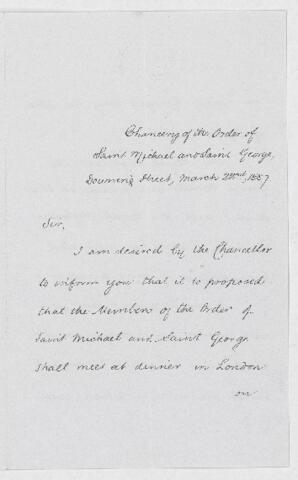 Chancery of the Order of
Saint Michael and Saint George,
Downing Street, March 22nd, 1887.
Sir,
I am desired by the Chancellor
to inform you that it is proposed
that the Members of the Order of
Saint Michael and Saint George
shall meet at dinner in London
on